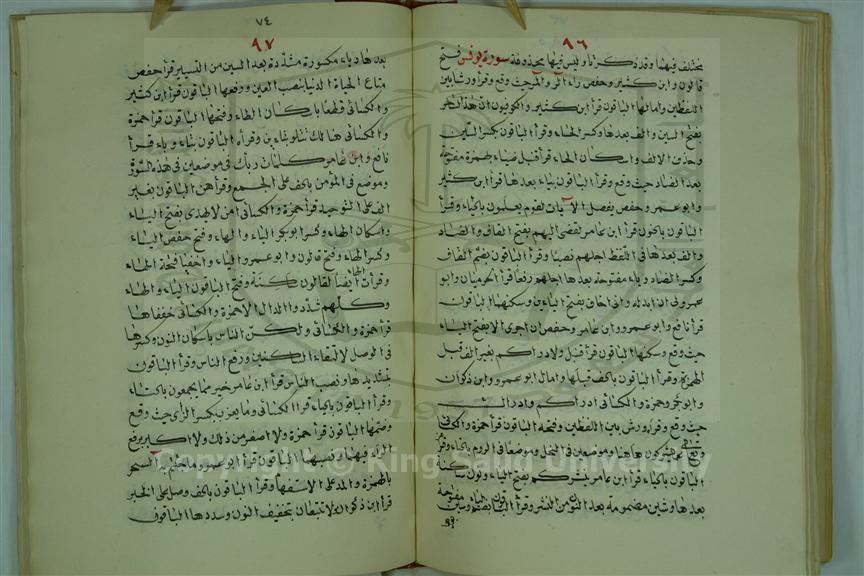 ٩٦
مختلف فيهما وقد ذكرنا وليس فيها محذوفة سورة يونس فتح
قالون وابن كثير وحفص راء الر والمر حيث وقع وقرأ ورش بين
اللفظين وامالها الباقون قرأ ابن كثير والكوفيون ان هذا لساحر
بفتح السين والف بعدها وكسر الحاء وقرأ الباقون بكسر السين
وحذف الالف واسكان الحاء قرأ قنبل ضئاء بهمزة مفتوحة
بعد الضاد حيث وقع وقرأ الباقون بياء بعدها قرأ ابن كثير
وابو عمرو وحفص يفصل الآيات لقوم يعلمون بالياء وقرأ
الباقون بالنون قرأ ابن عامر لقضى اليهم بفتح القاف والضاد
والف بعدها في اللفظ اجلهم نصبا وقرأ الباقون بضم القاف
وكسر الضاد وياء مفتوحة بعدها اجلهم رفعا قرأ الحرميان وابو
عمرو لي ان ابدله واني اخاف بفتح الياءين وسكنهما الباقون
قرأ نافع وابو عمرو وابن عامر وحفص ان اجري الا بفتح الياء
حيث وقع وسكنها الباقون قرأ قنبل ولادراكم بغير الف قبل
الهمزة وقرأ الباقون بالف قبلها وامال ابو عمرو وابن ذكوان
وابو بكر وحمزة والكسائي ادراكم وادراك
حيث وقع وقرأ ورش بين اللفظين وفتحه الباقون قرأ حمزة والكسائي
عما يشركون هاهنا وموضعين في النحل وموضعا في الروم بالتاء وقرأ
الباقون بالياء قرأ ابن عامر ينشركم بفتح الياء ونون ساكنة
بعدها وشين مضمومة بعد النون من النشر وقرأ الباقون بضم الياء وسين مفتوحة
٧٤
٩٧
بعدها وياء مكسورة مشددة بعد السين من التسيير قرأ حفص
متاع الحياة الدنيا بنصب العين ورفعها الباقون قرأ ابن كثير
والكسائي قطعا باسكان الطاء وفتحها الباقون قرأ حمزة
والكسائي هنالك تتلو بتاءين وقرأه الباقون بتاء وباء قرأ
نافع وابن عامر كلمات ربك في موضعين في هذه السورة
وموضع في المؤمن بالف على الجمع وقرأهن الباقون بغير
الف على التوحيد قرأ حمزة والكسائي امن لا يهدي بفتح الياء
واسكان الهاء وكسر ابو بكر الياء والهاء وفتح حفص الياء
وكسر الهاء وفتح قالون وابو عمرو الياء واخفيا فتحة الهاء
وقرأت ايضا لقالون ساكنة وفتح الباقون الياء والهاء
وكلهم شدد والدال الا حمزة والكسائي خففاها
قرأ حمزة والكسائي ولكن الناس باسكان النون وكسرها
في الوصل لالتقاء الساكنين ورفع الناس وقرأ الباقون
بتشديدها ونصب الناس قرأ ابن عامر خير مما يجمعون بالتاء
وقرأ الباقون بالياء قرأ الكسائي وما يعزب بكسر الزاي حيث وقع
وضمها الباقون قرأ حمزة ولا اصغر من ذلك ولا اكبر برفع
الراء فيهما ونصبهما الباقون قرأ ابو عمرو ما جئتم به آلسحر
بالهمزة والمد على الاستفهام وقرأ الباقون بالف وصل على الخبر
قرأ ابن ذكوان ولا تتبعان بتخفيف النون وشددها الباقون
Copyright © King Saud University